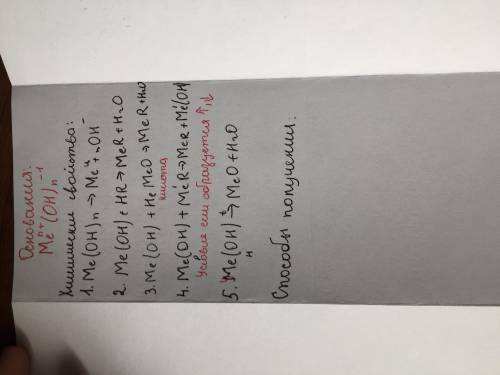 Основания:
Meⁿ⁺(OH)ₙ⁻¹
Химические свойства:
1. Me(OH)n → Meⁿ + nOH⁻
2. Me(OH) + HR → MeR + H₂O
3. Me(OH) + НеMeO → MeR + H₂O
кислота
4. Me(OH) + MéR → MeR + Mé(OH)
Условие если образуется ↑,↓
5. Me(OH) →ᵗ MeO + H₂O
н
Способы получения: